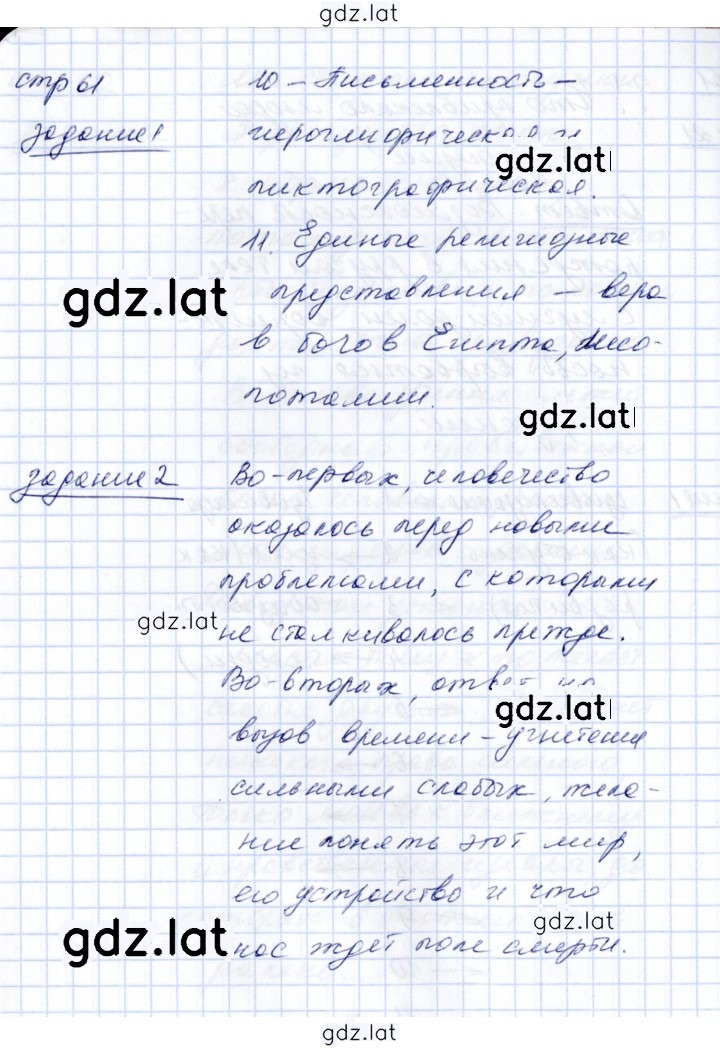 gdz.lat
стр 61
10 - Письменность -
задание 1
иероглифическая и
gdz.lat
пиктографическая.
11. Единые религиозные
gdz.lat
представления - вера
в богов Египта, Месо-
потамии.
gdz.lat
задание 2
Во-первых, человечество
оказалось перед новыми
проблемами, с которыми
gdz.lat
не сталкивалось прежде.
Во-вторых, ответ на
gdz.lat
вызов времени - угнетение
сильными слабых, жела-
ние понять этот мир,
его устройство и что
gdz.lat
gdz.lat
нас ждёт поле смерти.
gdz.lat